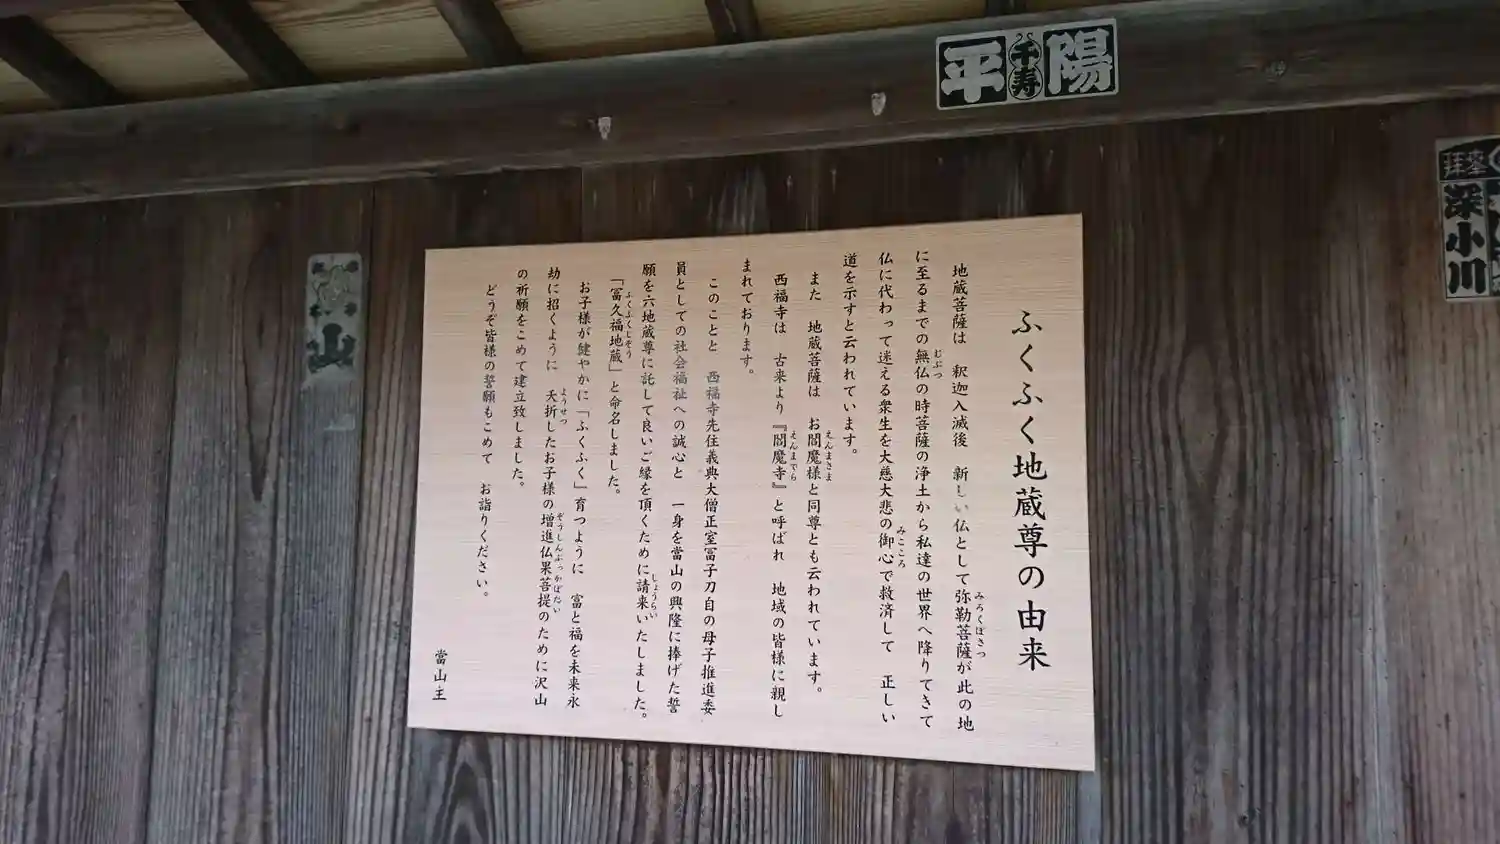 ふくふく地蔵尊の由来
地蔵菩薩は 釈迦入滅後 新しい仏として弥勒菩薩が此の地
みろくぼさつ
に至るまでの無仏の時菩薩の浄土から私達の世界へ降りてきて
むぶつ
仏に代わって迷える衆生を大慈大悲の御心で救済して 正しい
みこころ
道を示すと云われています。
また 地蔵菩薩は お閻魔様と同尊とも云われています。
えんまさま
西福寺は 古来より『閻魔寺』と呼ばれ 地域の皆様に親し
えんまでら
まれております。
このことと 西福寺先住義典大僧正室冨子刀自の母子推進委
員としての社会福祉への誠心と 一身を當山の興隆に捧げた誓
願を六地蔵尊に託して良いご縁を頂くために請来いたしました。
しょうらい
「冨久福地蔵」と命名しました。
ふくふくじぞう
お子様が健やかに「ふくふく」育つように 富と福を未来永
劫に招くように 夭折したお子様の増進仏果菩提のために沢山
ようせつ
ぞうしんぶっかぼだい
の祈願をこめて建立致しました。
どうぞ皆様の誓願もこめて お詣りください。
當山主
平
千寿
陽
山
深
小川